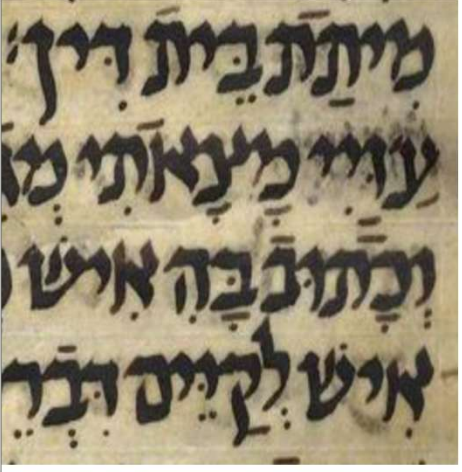 מִיתַת בֵּית דִּין
עזיי מָצָאתִי
וְכָתוּב בָּהּ אִישׁ
אִישׁ לְקַיֵּים דִּבְרֵ